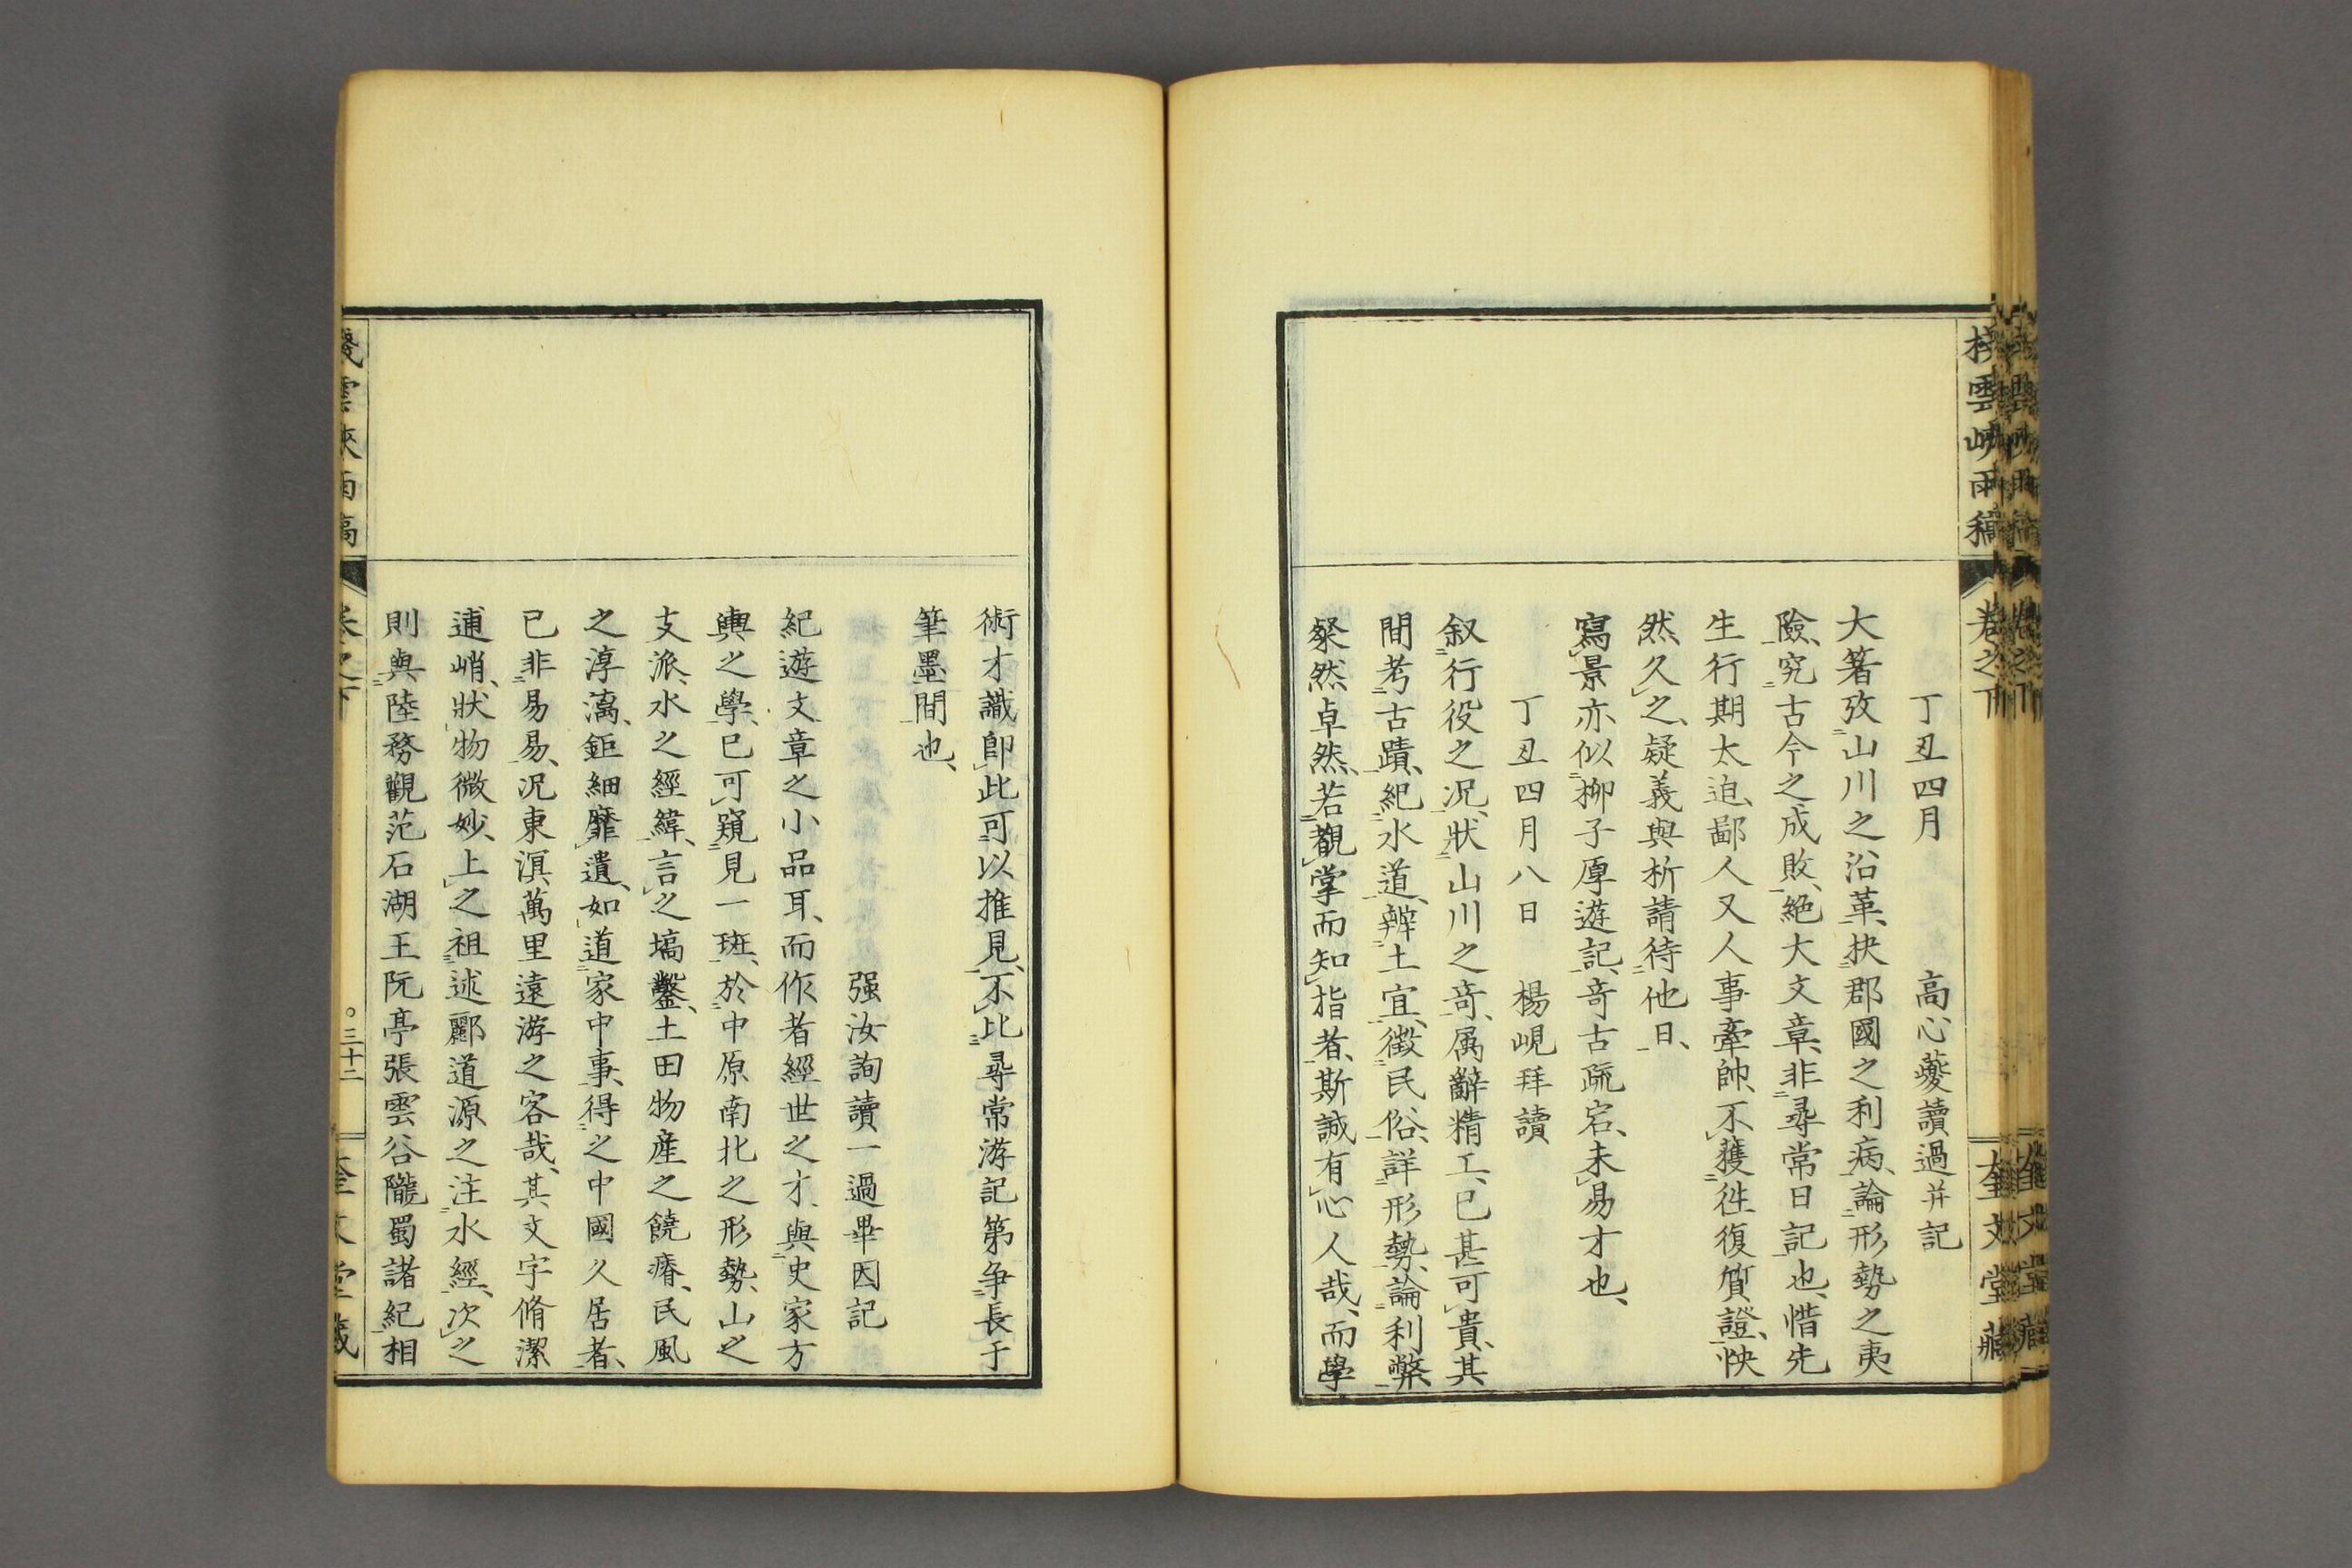 棧雲峽雨稿
卷之下
奎文堂藏
丁丑四月　高心夔讀過并記
大箸攷山川之沿革、抉郡國之利病、論形勢之夷
險、究古今之成敗、絕大文章、非尋常日記也、惜先
生行期太迫、鄙人又人事牽帥、不獲徃復質證、怏
然久之、疑義與析請待他日、
寫景亦似柳子厚遊記、奇古疏宕、未易才也、
丁丑四月八日　楊峴拜讀
叙行役之况、狀山川之奇、属辭精工、已甚可貴、其
間考古蹟、紀水道、辨土宜、徵民俗、詳形勢、論利弊、
粲然卓然、若觀掌而知指者、斯誠有心人哉、而學
術才識卽此可以推見、不比尋常游記第争長于
筆墨間也、
强汝詢讀一過畢因記
紀遊文章之小品耳、而作者經世之才、與史家方
輿之學、已可窺見一斑、於中原南北之形勢、山之
支派、水之經緯、言之塙鑿、土田物產之饒瘠、民風
之淳漓、鉅細靡遺、如道家中事、得之中國久居者、
已非易易、况東溟萬里遠游之客哉、其文字脩潔
逋峭、狀物微妙、上之祖述酈道源之注水經、次之
則與陸務觀范石湖王阮亭張雲谷隴蜀諸紀相
棧雲峽雨稿
卷之下
三十二
奎文堂藏